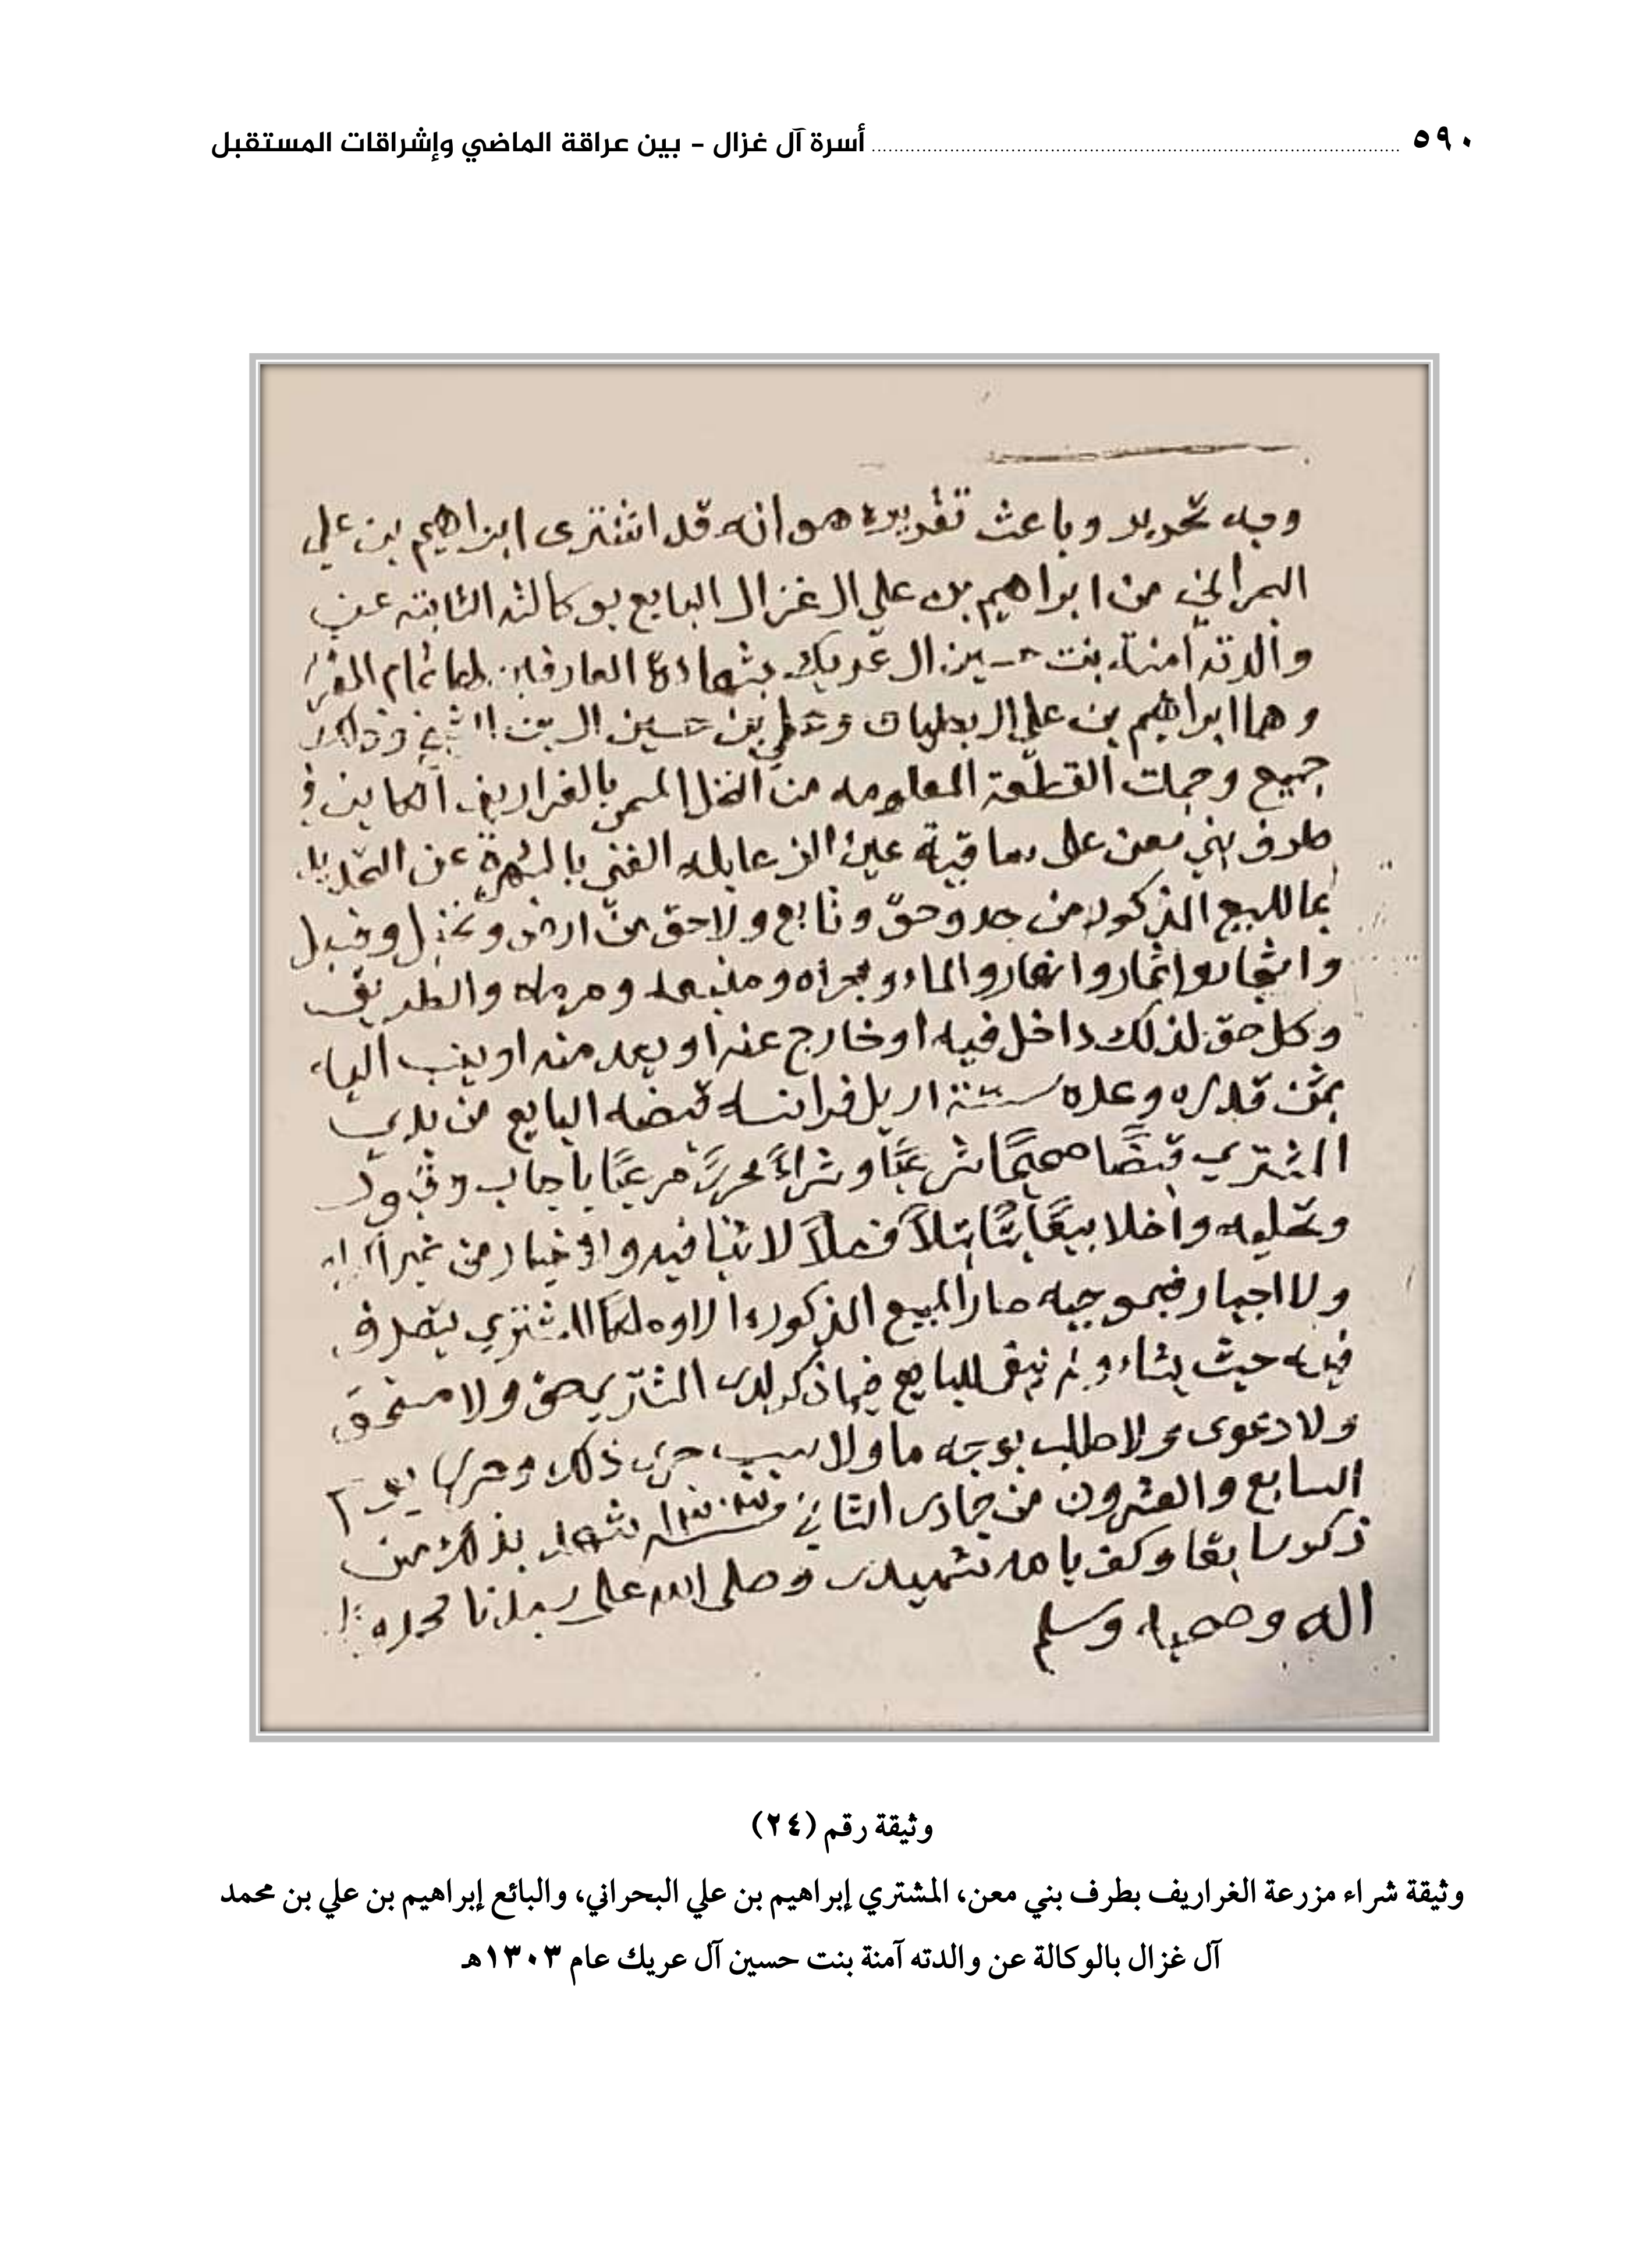 ٥٩٠ أسرة آل غزال - بين عراقة الماضي وإشراقات المستقبل
وجه تحرير وباعث تقريره هو انه قد اشترى ابراهيم بن علي
البحراني من ابراهيم بن علي ال غزال البايع بوكالته الثابته عن
والدته آمنة بنت حسين ال عريك بشهادة العارفين لها تمام
وهما ابراهيم بن علي ال و علي بن حسين ال بن الشيخ وذلك
جميع وجملت القطعة المعلومه من النخل المسمى بالغراريف الكاين في
طرف بني معن على ساقية عين الغني بالشهرة عن التحديد
بما للبيع المذكور من حد وحق وتابع ولاحق من ارض ونخيل وفسيل
واشجار واثمار وانهار والماء ومجراه ومنبعه ومرماه والطريق
وكل حق لذلك داخل فيه او خارج عنه او يعد منه او ينسب اليه
بثمن قدره وعده ستة اريل فرانسه قبضه البايع من يدي
المشتري قبضًا صحيحًا شرعيًا وشراءً محررً مرعيًا باجاب وقبول
وتخليه واخلا بيعًا بتًا بتلاً فصلاً لا ثنيا فيه ولا خيار من غير اكراه
ولا اجبار فبموجبه صار المبيع المذكور ملكا للمشتري يتصرف
فيه حيث يشاء ولم يبق للبايع فيما ذكر لدى المشتري حق ولا مستحق
ولا دعوى ولا طلب بوجه ما ولا سبب جرى ذلك وحرر يوم
السابع والعشرون من جمادى الثاني شهد بذلك من
ذكر سابقا وكفى بالله شهيدا وصلى الله على سيدنا محمد
اله وصحبه وسلم
وثيقة رقم (٢٤)
وثيقة شراء مزرعة الغراريف بطرف بني معن، المشتري إبراهيم بن علي البحراني، والبائع إبراهيم بن علي بن محمد
آل غزال بالوكالة عن والدته آمنة بنت حسين آل عريك عام ١٣٠٣هـ